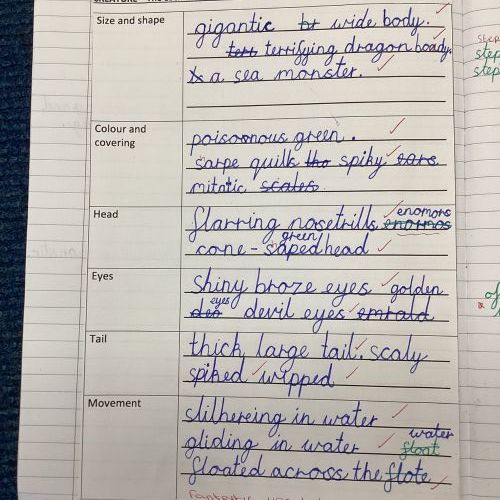 Size and shape
gigantic wide body.
terrifying dragon boady.
a sea monster.
Colour and
covering
poisonous green.
sarpe quills spiky ears
mitatic scales
Head
flarring nosetrills enomors enormos
green
cone-shaped head
Eyes
Shiny broze eyes golden
eyes
devil eyes emrald
Tail
thick large tail. scaly
spiked wipped
Movement
slithereing in water
water
gliding in water float
floated across the flote
step
step
step
of